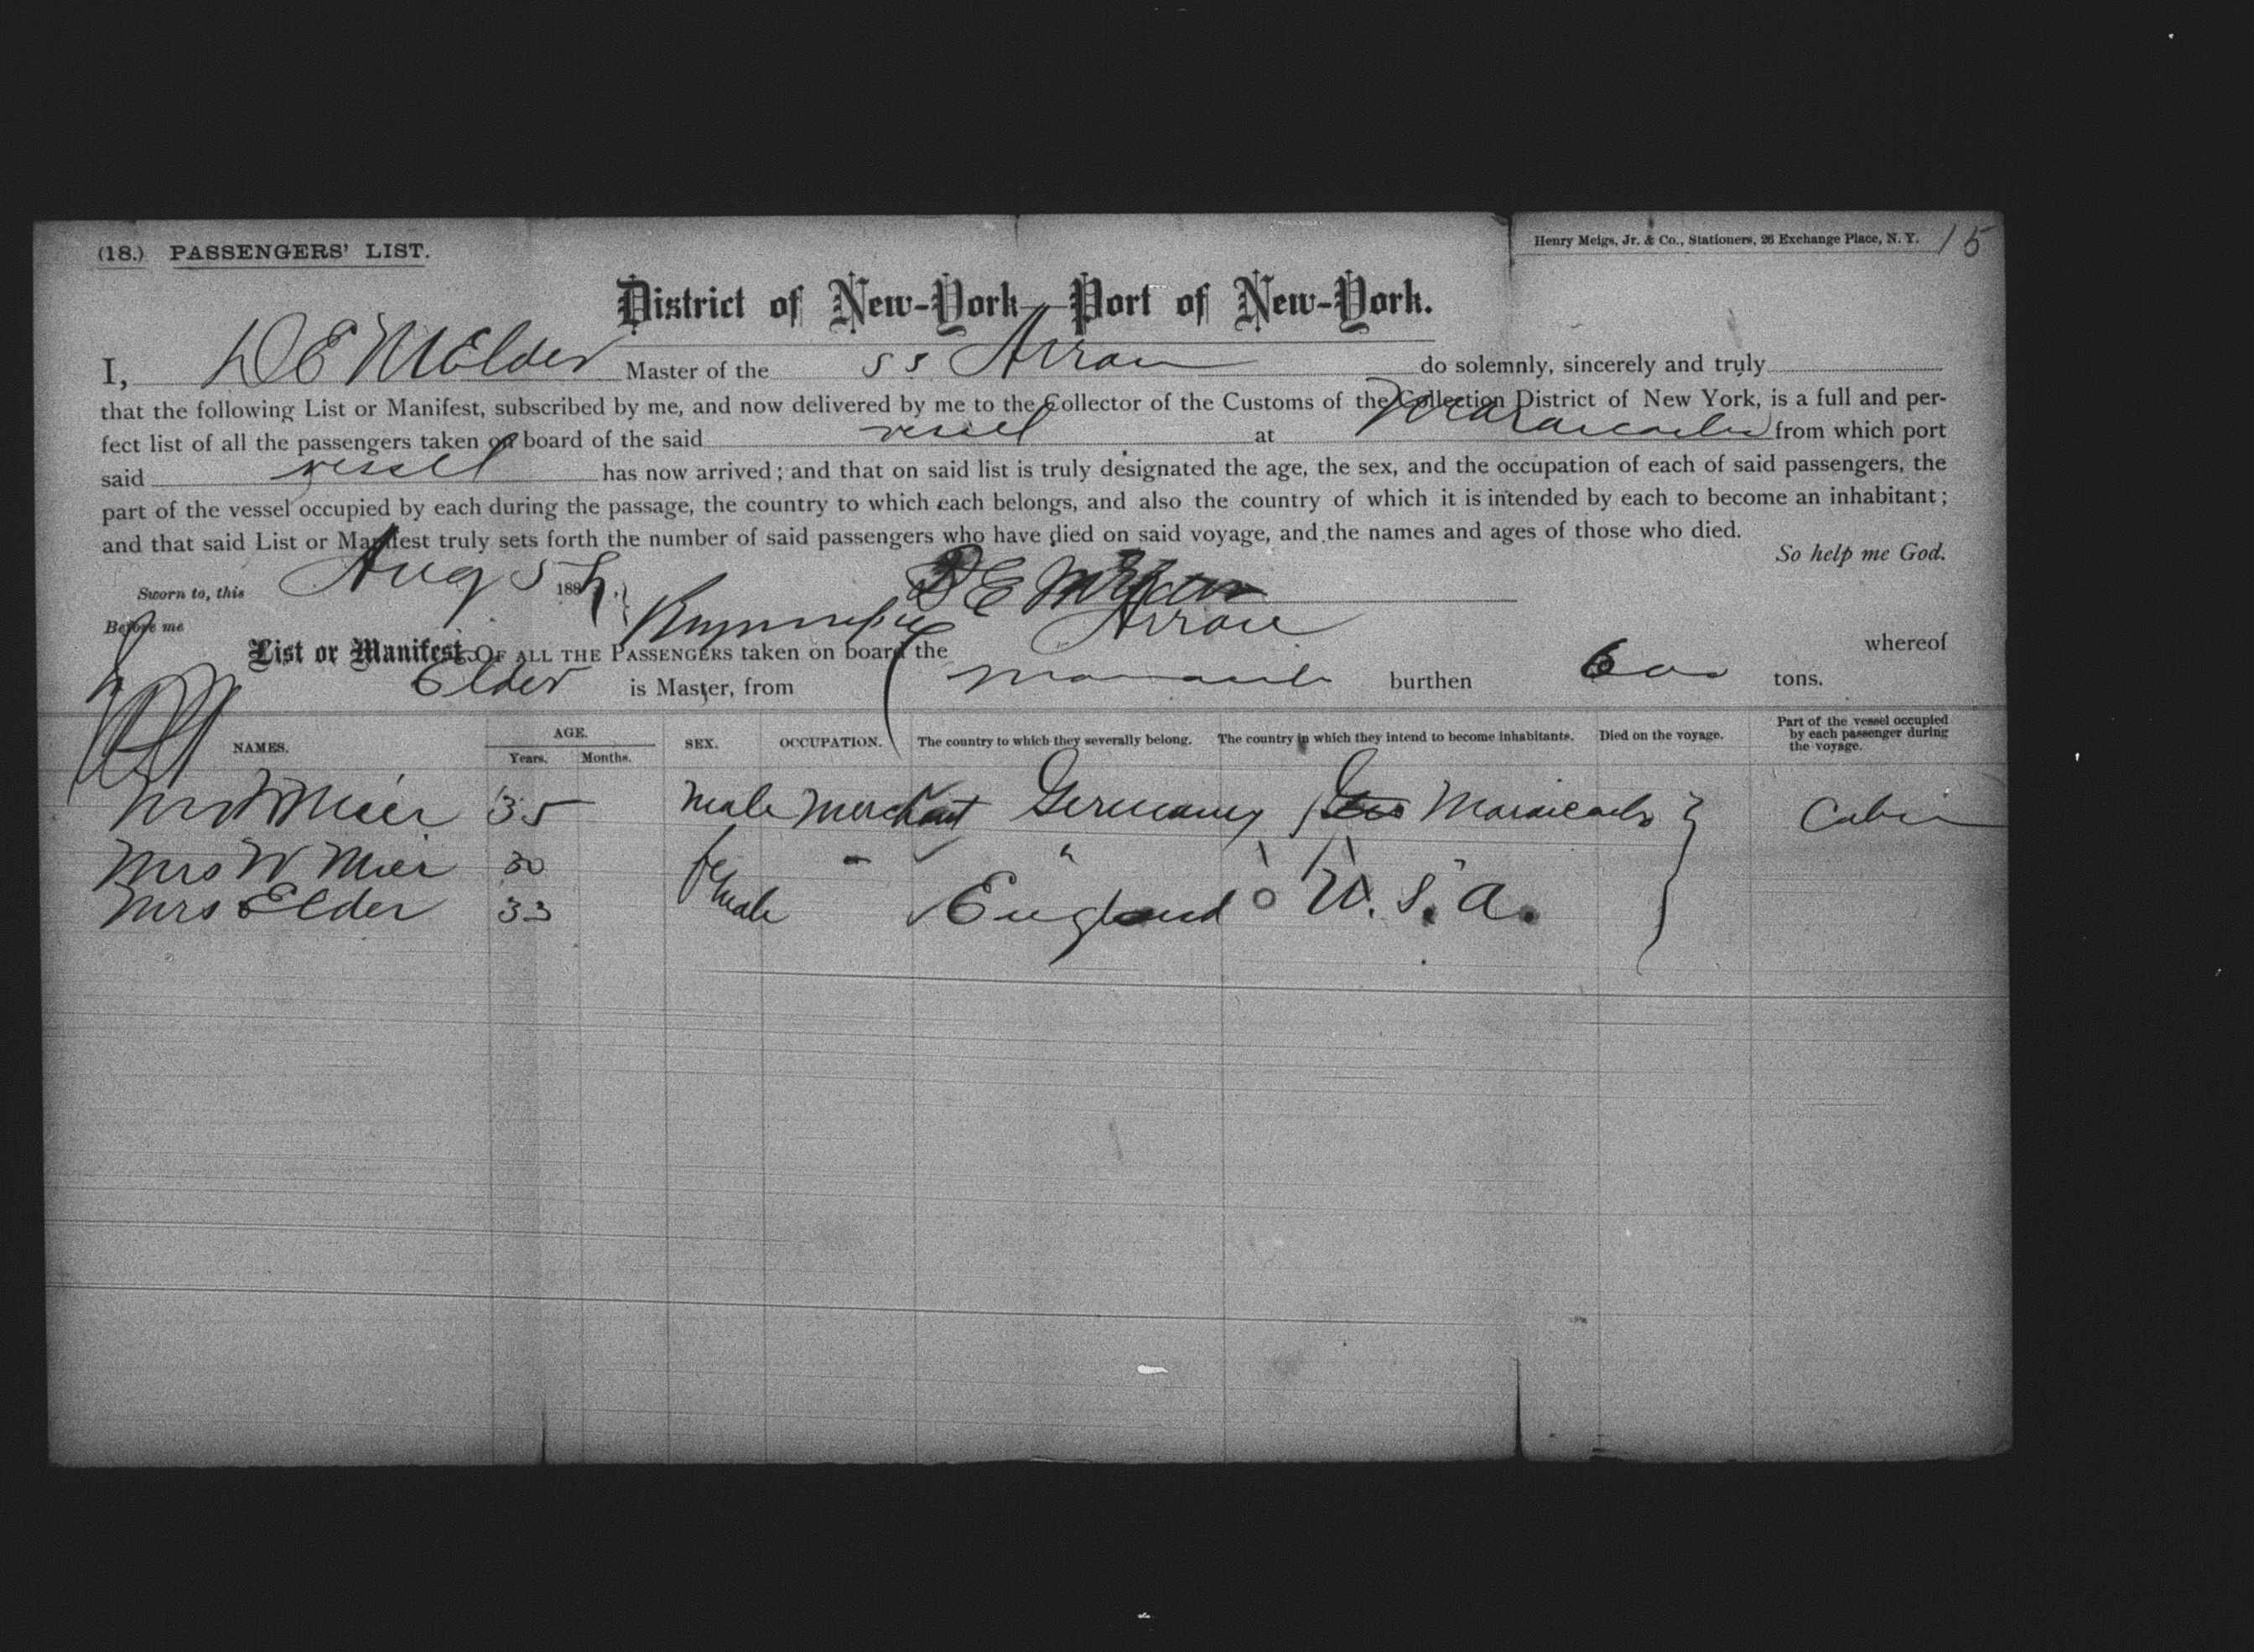 (18.) PASSENGERS' LIST.
Henry Meigs, Jr. & Co., Stationers, 26 Exchange Place, N. Y. 15
District of New-York—Port of New-York.
I, D E M Elder Master of the SS Arrow do solemnly, sincerely and truly
that the following List or Manifest, subscribed by me, and now delivered by me to the Collector of the Customs of the Collection District of New York, is a full and per-
fect list of all the passengers taken on board of the said vessel at Maracaibo from which port
said vessel has now arrived; and that on said list is truly designated the age, the sex, and the occupation of each of said passengers, the
part of the vessel occupied by each during the passage, the country to which each belongs, and also the country of which it is intended by each to become an inhabitant;
and that said List or Manifest truly sets forth the number of said passengers who have died on said voyage, and the names and ages of those who died.
So help me God.
Sworn to, this Aug 5 188
Before me
List or Manifest, OF ALL THE PASSENGERS taken on board the Arrow whereof
Elder is Master, from Maracaibo burthen 600 tons.
NAMES. AGE. Years. Months. SEX. OCCUPATION. The country to which they severally belong. The country in which they intend to become inhabitants. Died on the voyage. Part of the vessel occupied by each passenger during the voyage.
Mr W Mier 35 male Merchant Germany Maracaibo Cabin
Mrs W Mier 30 female " "
Mrs Elder 33 England U. S. A.